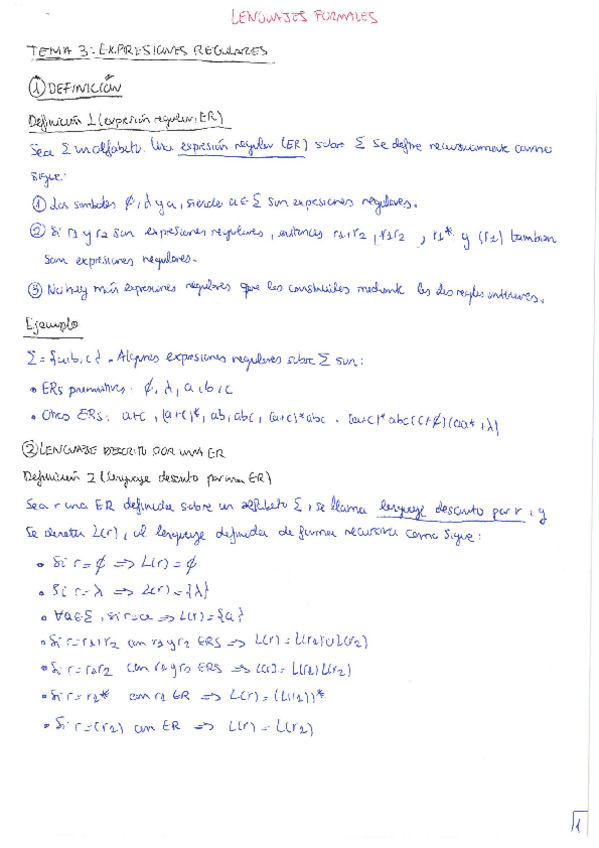 LENGUAJES FORMALES
TEMA 3: EXPRESIONES REGULARES
① DEFINICIÓN
Definición 1 (expresión regular, ER)
Sea Σ un alfabeto. Una expresión regular (ER) sobre Σ se define recursivamente como
sigue:
① Los símbolos ∅, λ y a, siendo a∈Σ son expresiones regulares.
② Si r1 y r2 son expresiones regulares, entonces r1+r2, r1r2, r1* y (r1) también
son expresiones regulares.
③ No hay más expresiones regulares que las construidas mediante las dos reglas anteriores.
Ejemplo
Σ = {a,b,c}. Algunas expresiones regulares sobre Σ son:
• ERs primitivas: ∅, λ, a, b, c
• Otras ERs: a+c, (a+c)*, ab, abc, (a+c)*abc. (a+c)*abc(c+∅)(aa*+λ)
② LENGUAJE DESCRITO POR UNA ER
Definición 2 (lenguaje descrito por una ER)
Sea r una ER definida sobre un alfabeto Σ, se llama lenguaje descrito por r, y
se denota L(r), al lenguaje definido de forma recursiva como sigue:
• Si r = ∅ => L(r) = ∅
• Si r = λ => L(r) = {λ}
• ∀a∈Σ, si r = a => L(r) = {a}
• Si r = r1+r2 con r1 y r2 ERs => L(r) = L(r1)∪L(r2)
• Si r = r1r2 con r1 y r2 ERs => L(r) = L(r1)L(r2)
• Si r = r1* con r1 ER => L(r) = (L(r1))*
• Si r = (r1) con ER => L(r) = L(r1)
1